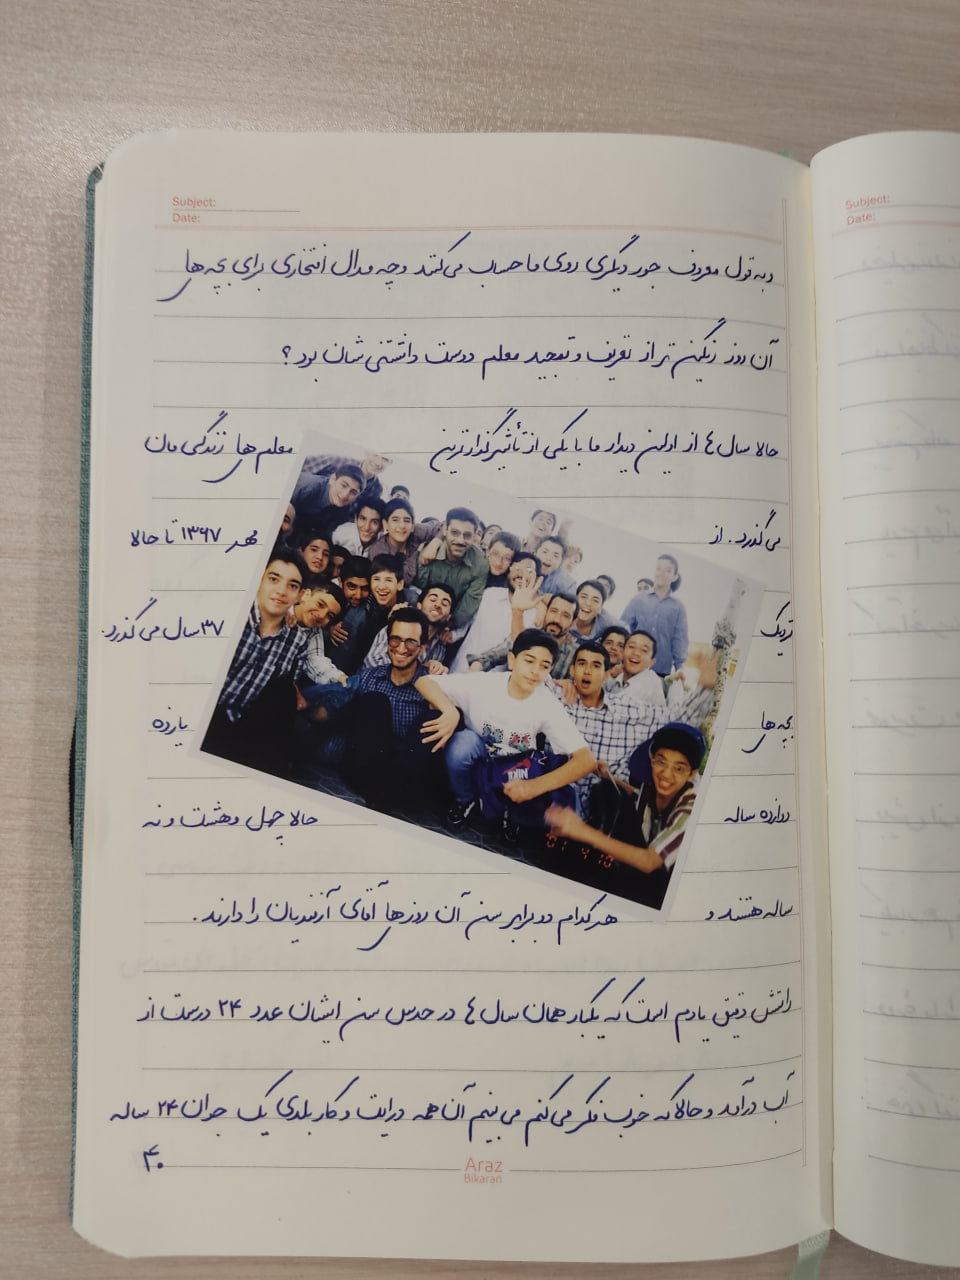 Subject:
Date:
Subject:
Date:
و به قول معروف جور دیگری روی ما حساب می‌کنند و چه مدال افتخاری برای بچه‌های
آن روز رنگین‌تر از تعریف و تمجید معلم دوست داشتنی شان بود؟
حالا سال ٤ از اولین دیدار ما با یکی از تأثیرگذارترین معلم‌های زندگی مان
می‌گذرد. از مهر ۱۳۶۷ تا حالا
نزدیک ۳۷ سال می‌گذرد.
بچه‌های یازده
دوازده ساله حالا چهل و هشت و نه
ساله هستند و هر کدام دو برابر سن آن روزهای آقای آزندیان را دارند.
راستش دقیق یادم است که یکبار همان سال ٤ در حدس سن ایشان عدد ۲۴ درست از
آب درآمد و حالا که خوب فکر می‌کنم می‌بینم آن همه درایت و کار بلدی یک جوان ۲۴ ساله
۴۰
Araz
Bikaran
NIKE
01 4 10